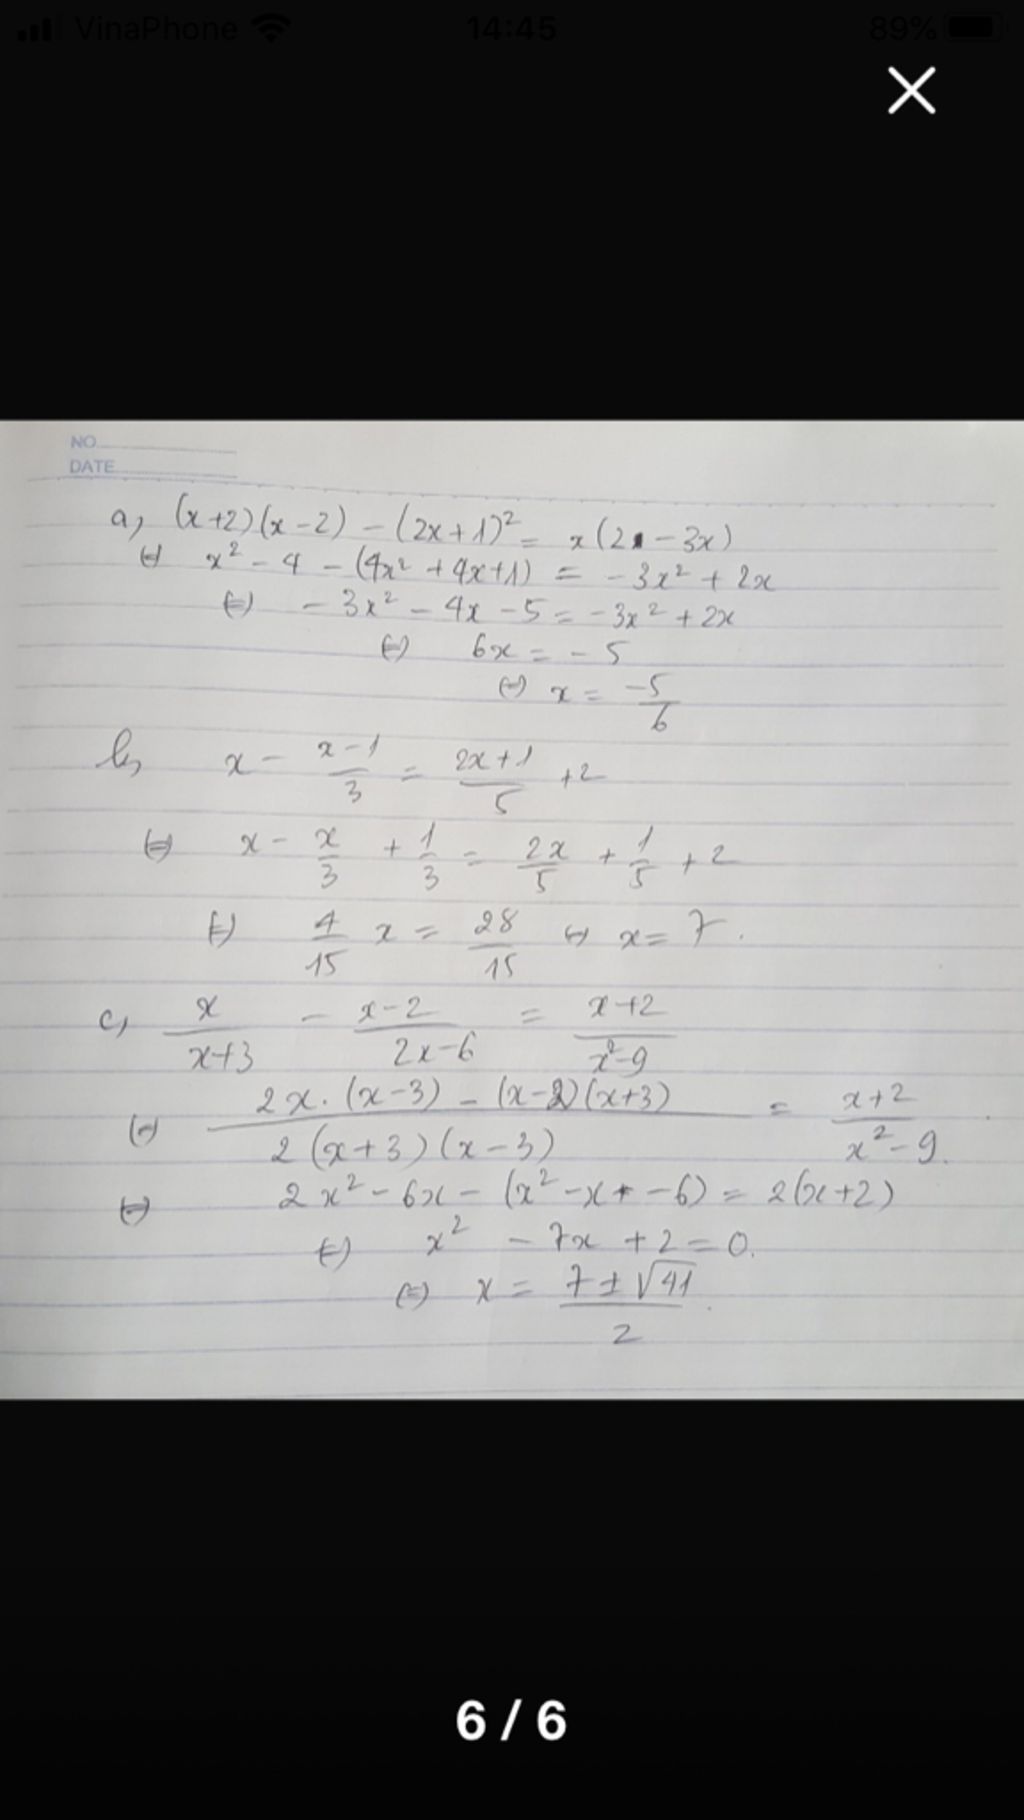 VinaPhone 14:45 89%
NO
DATE
a, (x+2)(x-2) - (2x+1)² = x(2 - 3x)
(=) x² - 4 - (4x² + 4x+1) = -3x² + 2x
(=) -3x² - 4x - 5 = -3x² + 2x
(=) 6x = -5
(=) x = -5/6
b, x - (x-1)/3 = (2x+1)/5 + 2
(=) x - x/3 + 1/3 = 2x/5 + 1/5 + 2
(=) 4/15 x = 28/15 (=) x = 7.
c, x/(x+3) - (x-2)/(2x-6) = (x+2)/(x²-9)
(=) (2x.(x-3) - (x-2)(x+3))/(2(x+3)(x-3)) = (x+2)/(x²-9).
(=) 2x² - 6x - (x² - x + -6) = 2(x+2)
(=) x² - 7x + 2 = 0.
(=) x = (7 ± √41)/2.
6 / 6